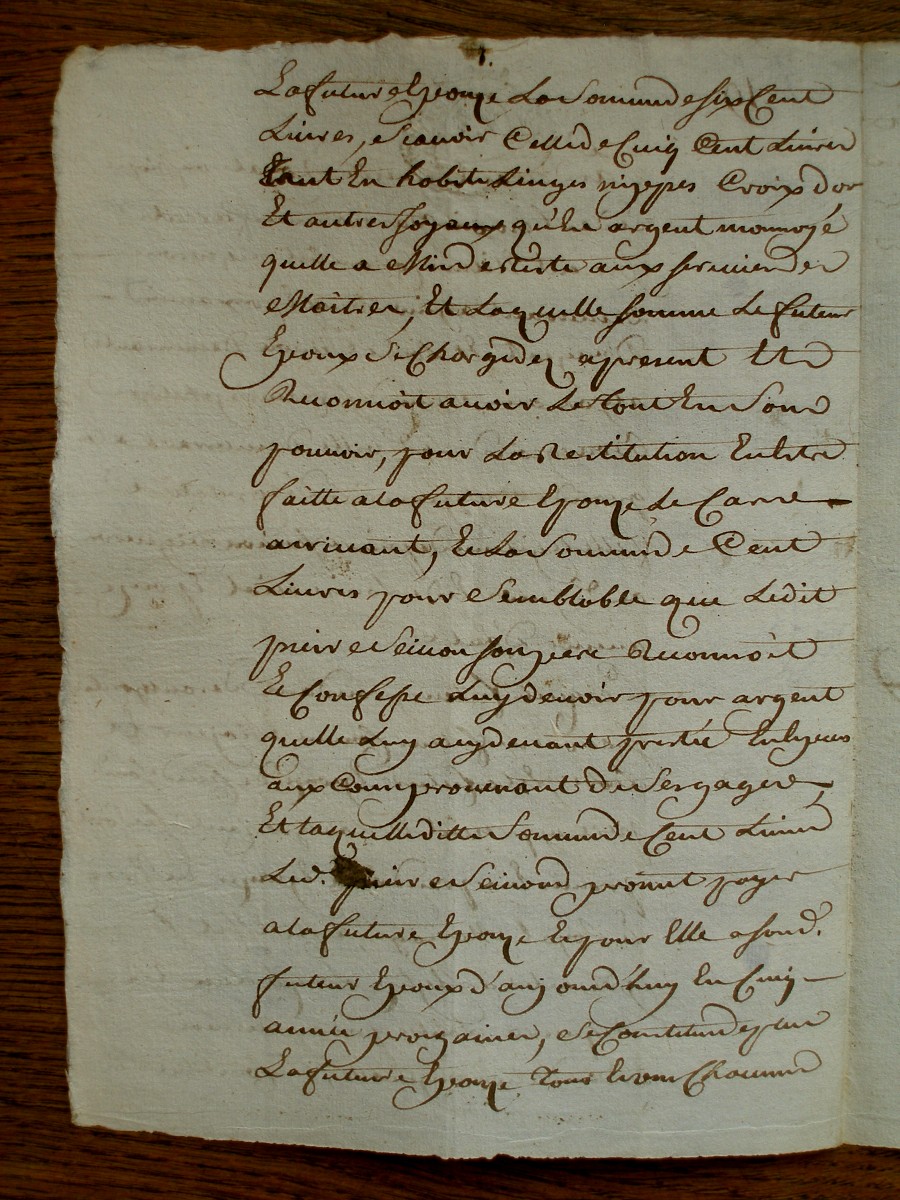 La future Epouze La Somme de six Cent
Livres, Scavoir Celle de Cinq Cent Livres
tant En habits Linges nippes Croix d'or
Et autres Joyaux qu'En argent monnoyé
quelle a Mis de reste aux services des
Maitres, Et Laquelle somme Le futeur
Epoux Se Charge dez apresent Et
Reconnoit avoir Le tout En Son
pouvoir, pour La Restitution En Estre
faitte a la future Epouze Le Cas
arrivant, Et La Somme de Cent
Livres pour Semblable que Ledit
pierre Simon son pere Reconnoit
Et Confesse Luy devoir pour argent
quelle Luy a cy devant presté En Especes
aux Cours provenant de Ses gages,
Et laquelle ditte Somme de Cent Livres
Led. pierre Simond promet payer
a la future Epouze Et pour Elle a sond.
futeur Epoux d'aujourd'huy En Cinq
année prochaines, Se Constitue de plus
La future Epouze Tous Et un Chacuns